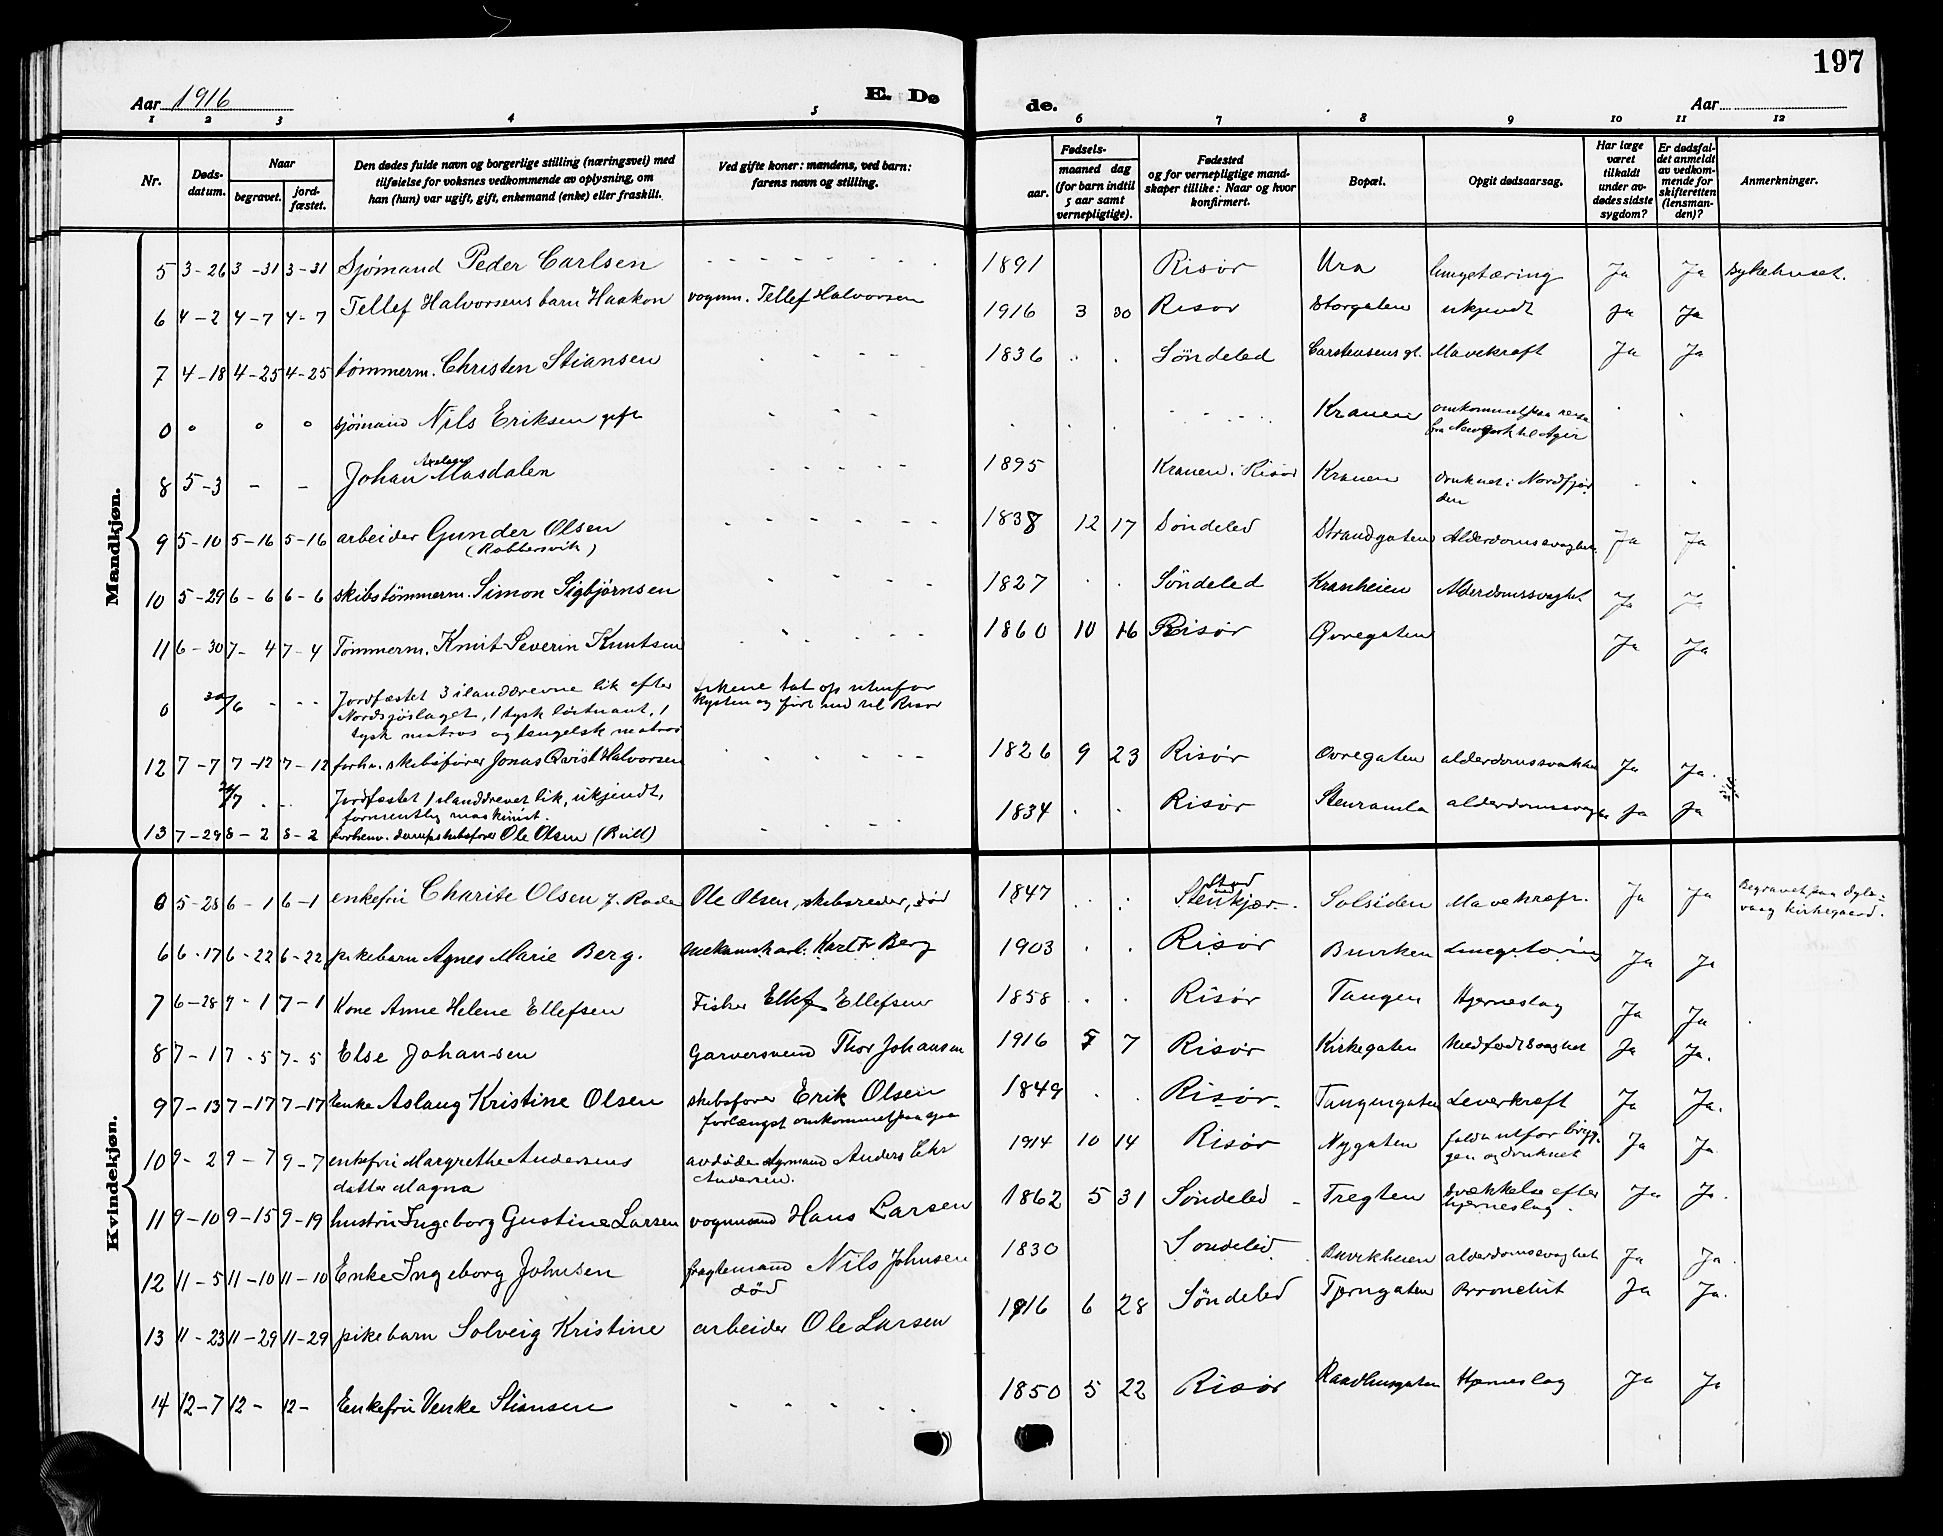 197
Aar 1916
E. Dø
de.
Aar
1 2 3 4 5 6 7 8 9 10 11 12
Nr.
Døds-
datum.
Naar
begravet.
jord-
fæstet.
Den dødes fulde navn og borgerlige stilling (næringsvei) med
tilføielse for voksnes vedkommende av oplysning, om
han (hun) var ugift, gift, enkemand (enke) eller fraskilt.
Ved gifte koner: mandens, ved barn:
farens navn og stilling.
Fødsels-
aar.
maaned dag
(for barn indtil
5 aar samt
vernepligtige).
Fødested
og for vernepligtige mand-
skaper tillike: Naar og hvor
konfirmert.
Bopæl.
Opgit dødsaarsag.
Har læge
været
tilkaldt
under av-
dødes sidste
sygdom?
Er dødsfal-
det anmeldt
av vedkom-
mende for
skifteretten
(lensman-
den)?
Anmerkninger.
Mandkjøn.
5 3-26 3-31 3-31 Sjømand Peder Carlsen 1891 Risør Ura lungetæring Ja Ja Sykehuset.
6 4-2 4-7 4-7 Tellef Halvorsens barn Haakon vognm. Tellef Halvorsen 1916 3 30 Risør Storgaten ukjendt Ja Ja
7 4-18 4-25 4-25 tømmerm. Christen Stiansen 1836 Søndeled Carstensens gt. Mavekræft Ja Ja
0 sjømand Nils Eriksen gift Kranen omkommet paa reise
fra New York til
8 5-3 - - Johan Masdalen 1895 Kranen i Risør Kranen druknet i Nordfjor
den
9 5-10 5-16 5-16 arbeider Gunder Olsen 1838 12 17 Søndeled Strandgaten Alderdomssvaghet Ja Ja
(Robbersvik)
10 5-29 6-6 6-6 skibstømmerm. Simon Sigbjørnsen 1827 Søndeled Kranheien Alderdomssvaghet Ja Ja
11 6-30 7-4 7-4 Tømmerm. Knut Severin Knutsen 1860 10 16 Risør Øvregaten Ja Ja
0 30/6 Jordfæstet 3 ilanddrevne lik efter
Nordsjøslaget, 1 tysk løitnant, 1
tysk matros og 1 engelsk matros
Likene tat op utenfor
kysten og ført ind til Risør
12 7-7 7-12 7-12 forhv. skibsfører Jonas Qvist Halvorsen 1826 9 23 Risør Øvregaten alderdomssvakhet Ja Ja.
Jordfæstet 1 ilanddrevet lik, ukjendt,
formentlig maskinist.
13 7-29 8-2 8-2 forhenv. dampskibsfører Ole Olsen (Bull) 1834 Risør Stenramla alderdomssvaghet Ja Ja
Kvindekjøn.
5-28 6-1 6-1 enkefru Charite Olsen f. Roede Ole Olsen, skibsreder, død 1847 Stenkjær. Solsiden Mavekræft. Ja Ja Begravet paa Dyb-
vaag Kirkegaard.
6 6-17 6-22 6-22 pikebarn Agnes Marie Berg. mekanisk arb. Karl Fr Berg 1903 Risør Buviken Lungetæring Ja Ja
7 6-28 7-1 7-1 Kone Anne Helene Ellefsen Fisker Ellef Ellefsen 1858 Risør Tangen Hjerneslag Ja Ja
8 7-1 7-5 7-5 Else Johansen Garversvend Thor Johansen 1916 7 Risør Kirkegaten Medfødt Svaghet Ja Ja.
9 7-13 7-17 7-17 Enke Aslaug Kristine Olsen skibsfører Erik Olsen 1849 Risør. Tangengaten Leverkræft Ja Ja.
forlængst omkommet paa sjøen
10 9-2 9-7 9-7 enkefru Margrethe Andersens
datter Magna
avdøde styrmand Anders Chr
Andersen.
1914 10 14 Risør Nygaten faldt utfor bryg-
gen og druknet Ja Ja.
11 9-10 9-15 9-19 hustru Ingeborg Gustine Larsen vognmand Hans Larsen 1862 5 31 Søndeled Tregten Svækkelse efter
hjerneslag. Ja Ja.
12 11-5 11-10 11-10 Enke Ingeborg Johnsen fragtemand Nils Johnsen
død 1830 Søndeled Buvikheien alderdomssvaghet Ja Ja.
13 11-23 11-29 11-29 pikebarn Solveig Kristine arbeider Ole Larsen 1916 6 28 Søndeled Tjerngaten Bronchit Ja Ja.
14 12-7 12- 12- Enkefru Venke Stiansen 1850 5 22 Risør Raadhusgaten Hjerneslag Ja Ja